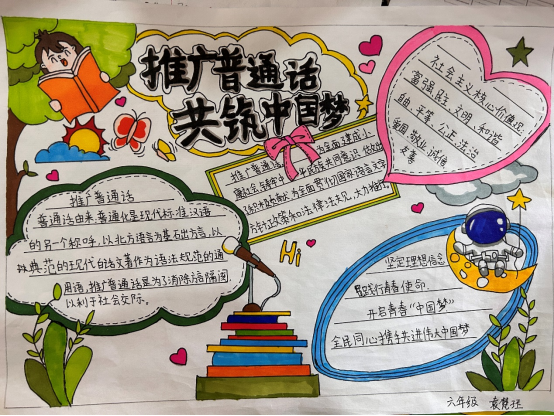 推广普通话
共筑中国梦
社会主义核心价值观
富强 民主 文明 和谐
自由 平等 公正 法治
爱国 敬业 诚信
友善
推广普通话
为全面建成小
推广普通话
普通话由来,普通化是现代标准汉语
的另一个称呼,以北方语言为基础方言,以
典范的现代白话文著作为语法规范的通
用语,推广普通话是为了消除语隔阂
以利于社会交际。
Hi
坚定理想信念
践行青春使命
开启青春“中国梦”
全民同心携手共进伟大中国梦
六年级